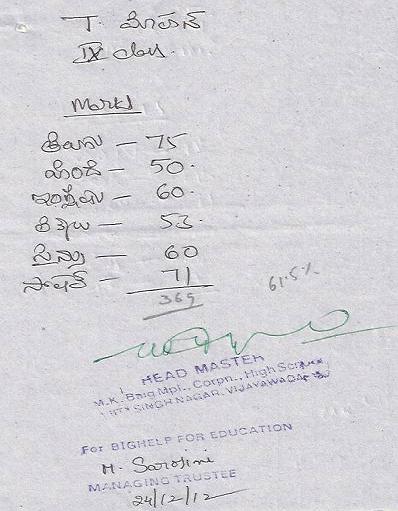 T. మోహన్
IX class.
Marks
తెలుగు – 75
హిందీ – 50.
ఇంగ్లీషు – 60.
లెక్కలు – 53.
సైన్సు – 60
సోషల్ – 71
369 61.5%
HEAD MASTER
M.K. Baig Mpl., Corpn., High School
SINGH NAGAR, VIJAYAWADA
For BIGHELP FOR EDUCATION
M. Sarojini
MANAGING TRUSTEE
24/12/12